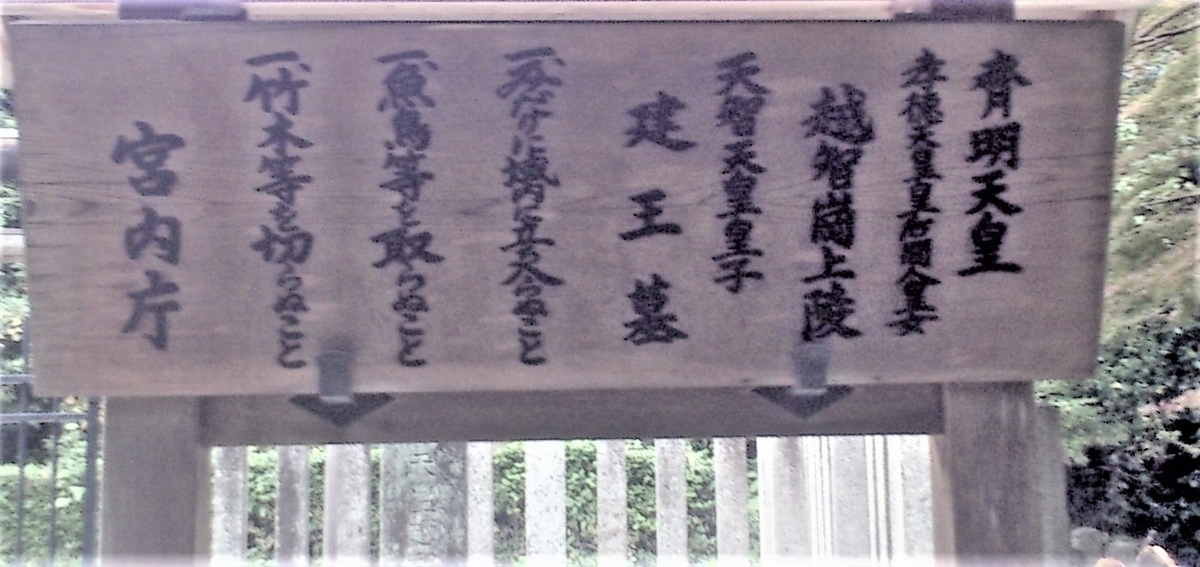 齊明天皇
孝德天皇皇后間人皇女
越智崗上陵
天智天皇皇子
建王墓
一、みだりに域内に立入らぬこと
一、魚鳥等を取らぬこと
一、竹木等を切らぬこと
宮内庁